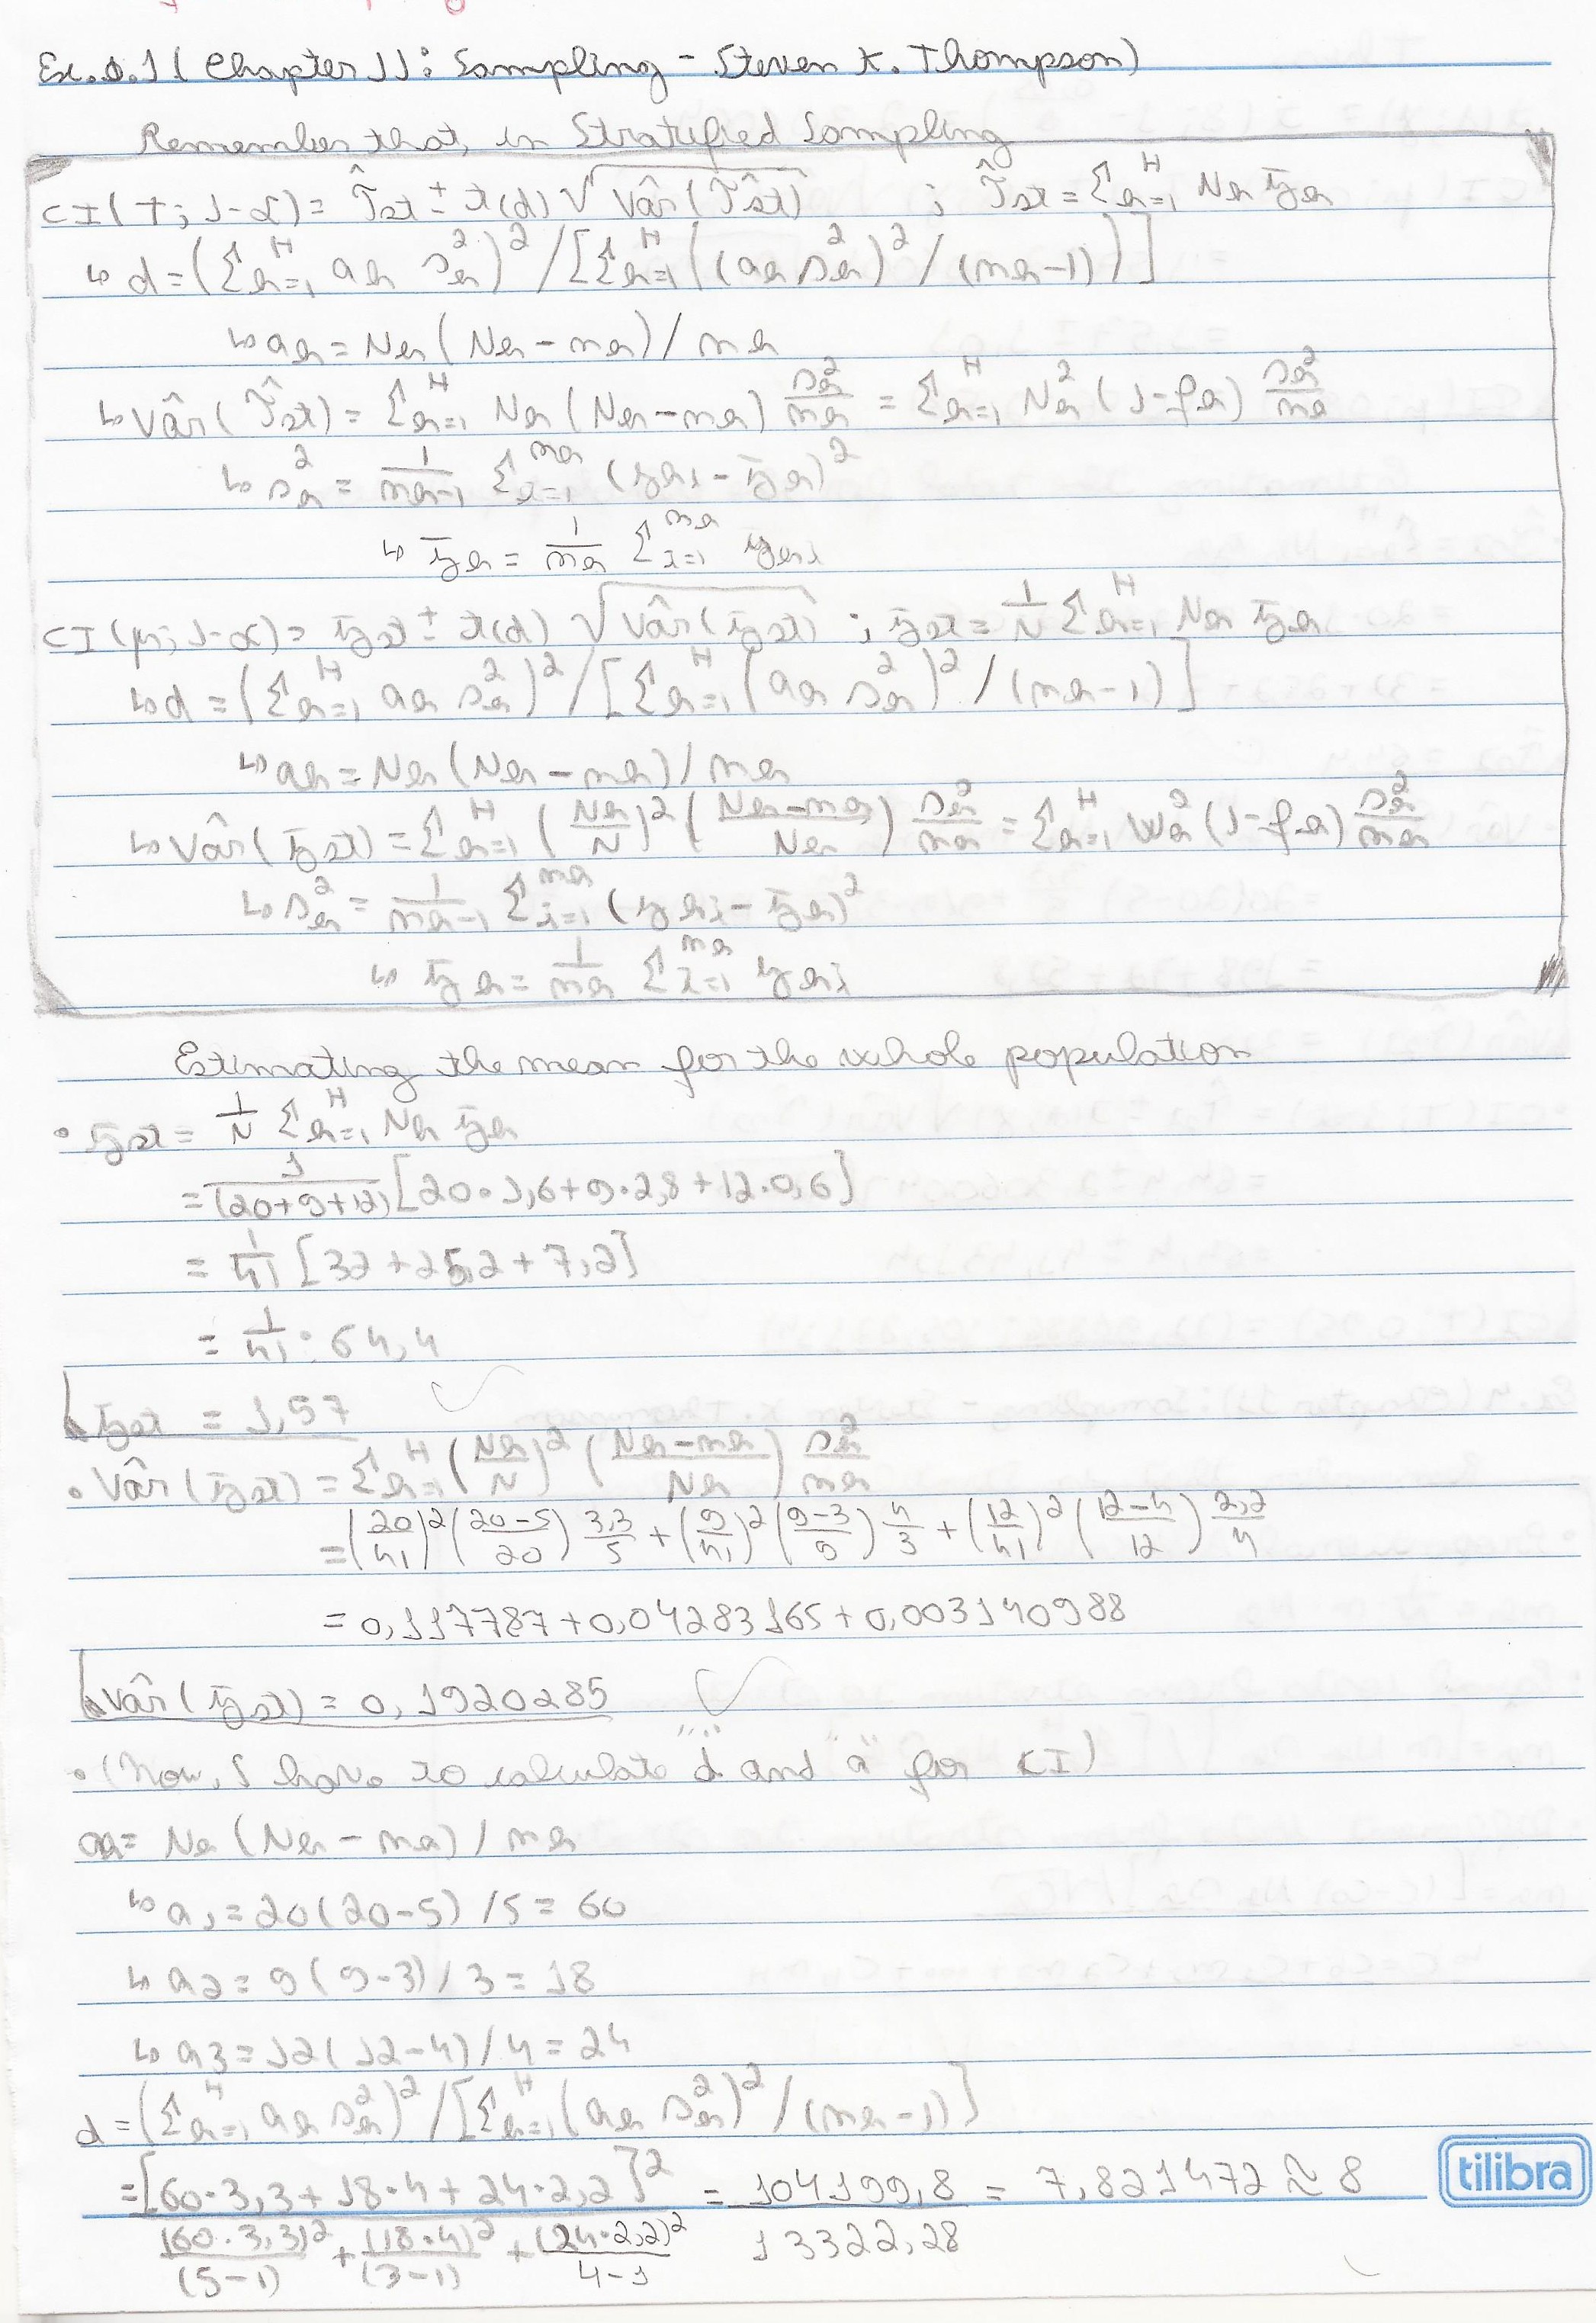 Ex. 1 (Chapter 11: Sampling - Steven K. Thompson)
Remember that, in Stratified Sampling
CI(T; 1-α) = T̂st ± t(d) √Vâr(T̂st) ; T̂st = Σ h=1^H Nh ȳh
↳ d = (Σ h=1^H ah sh²)² / [Σ h=1^H ((ah sh²)² / (nh-1))]
↳ ah = Nh (Nh - nh) / nh
↳ Vâr(T̂st) = Σ h=1^H Nh (Nh - nh) sh²/nh = Σ h=1^H Nh² (1-fh) sh²/nh
↳ sh² = 1/(nh-1) Σ i=1^nh (yhi - ȳh)²
↳ ȳh = 1/nh Σ i=1^nh yhi
CI(μ; 1-α) = ȳst ± t(d) √Vâr(ȳst) ; ȳst = 1/N Σ h=1^H Nh ȳh
↳ d = (Σ h=1^H ah sh²)² / [Σ h=1^H (ah sh²)² / (nh-1)]
↳ ah = Nh (Nh - nh) / nh
↳ Vâr(ȳst) = Σ h=1^H (Nh/N)² ((Nh-nh)/Nh) sh²/nh = Σ h=1^H Wh² (1-fh) sh²/nh
↳ sh² = 1/(nh-1) Σ i=1^nh (yhi - ȳh)²
↳ ȳh = 1/nh Σ i=1^nh yhi
Estimating the mean for the whole population
• ȳst = 1/N Σ h=1^H Nh ȳh
= 1/(20+9+12) [20·1,6+9·2,8+12·0,6]
= 1/41 [32+25,2+7,2]
= 1/41 · 64,4
↳ ȳst = 1,57
• Vâr(ȳst) = Σ h=1^H (Nh/N)² ((Nh-nh)/Nh) sh²/nh
= (20/41)² ((20-5)/20) 3,3/5 + (9/41)² ((9-3)/9) 4/3 + (12/41)² ((12-4)/12) 2,2/4
= 0,117787+0,04283165+0,003140988
↳ Vâr(ȳst) = 0,1920285
• (Now, I have to calculate "d" and "a" for CI)
ah = Nh (Nh - nh) / nh
↳ a1 = 20(20-5) /5 = 60
↳ a2 = 9(9-3)/3 = 18
↳ a3 = 12(12-4)/4 = 24
d = (Σ h=1^H ah sh²)² / [Σ h=1^H (ah sh²)² / (nh-1)]
= [60·3,3+18·4+24·2,2]² / ((60·3,3)²/(5-1) + (18·4)²/(3-1) + (24·2,2)²/4-1) = 104199,8 / 13322,28 = 7,821472 ≈ 8
tilibra